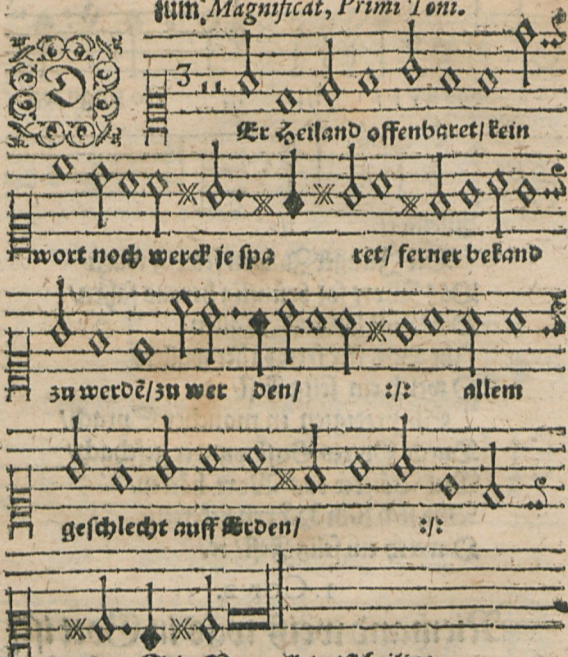 zum Magnificat, Primi Toni.
D
3
Er Heiland offenbaret/ kein
wort noch werck je spa ret/ ferner bekand
zu werdē/ zu wer den/ :/: allem
geschlecht auff Erden/ :/: